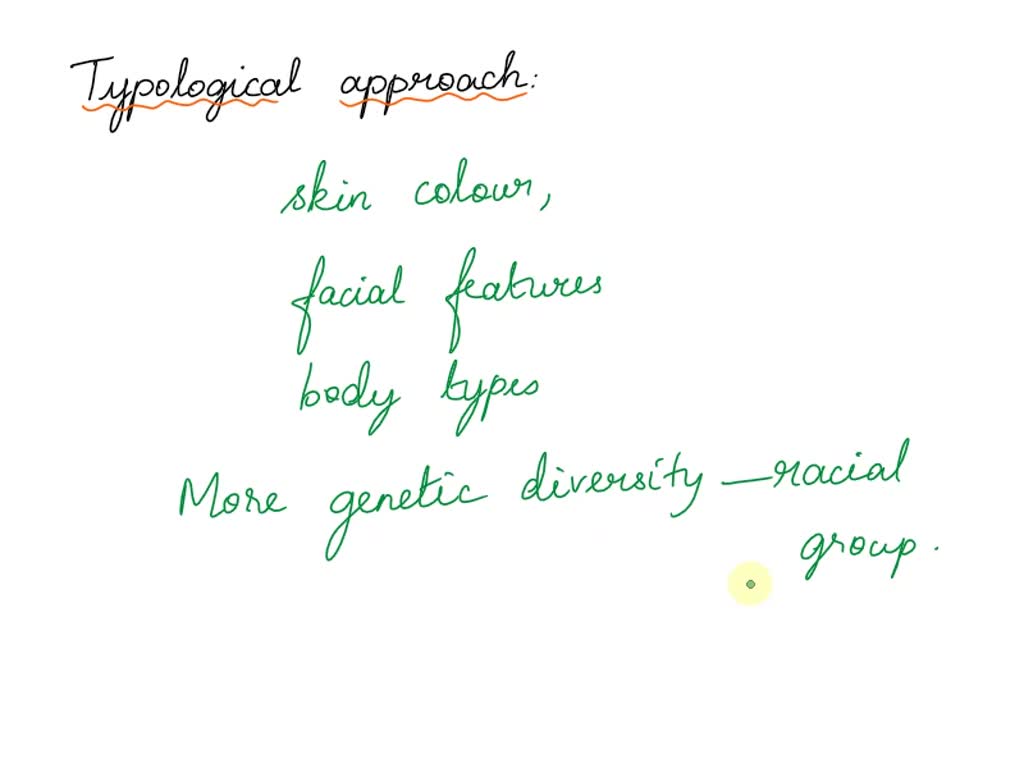 Typological approach:
skin colour,
facial features
body types
More genetic diversity — racial
group.